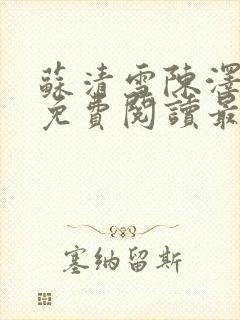 蘇清雪陳澤
免費閱讀最
塞納留斯